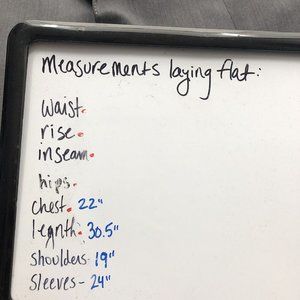 measurements laying flat:
waist.
rise.
inseam.
hips.
chest. 22"
legnth. 30.5"
shoulders- 19"
sleeves- 24"